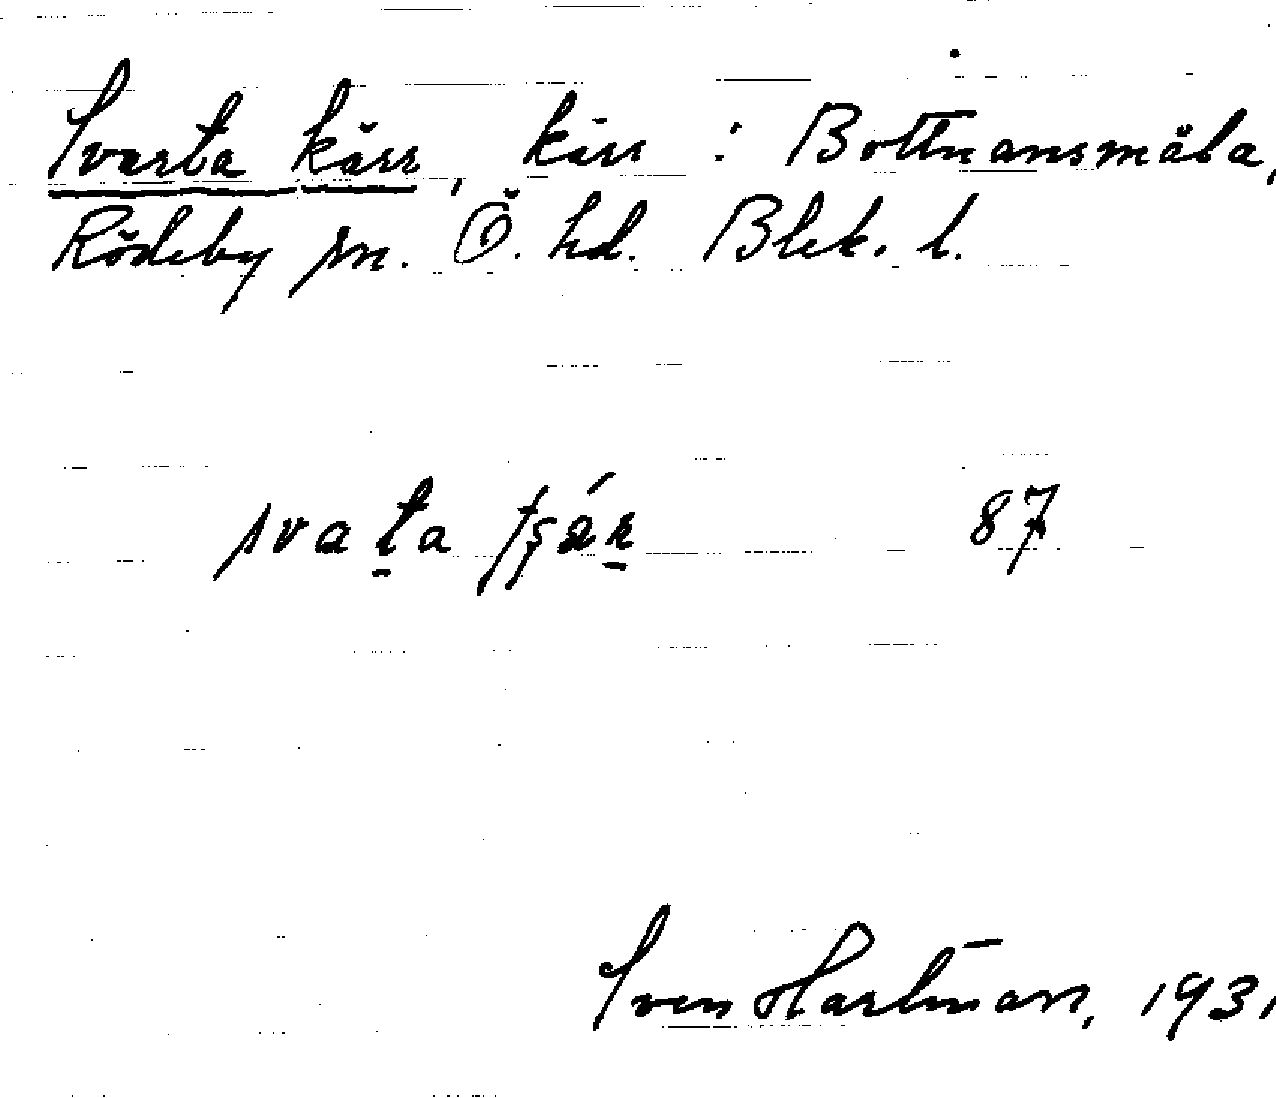 Svarta kärr, kärr : Bottnansmåla,
Rödeby sn. Ö. hd. Blek. l.
svata 87
Sven Hartman, 1931